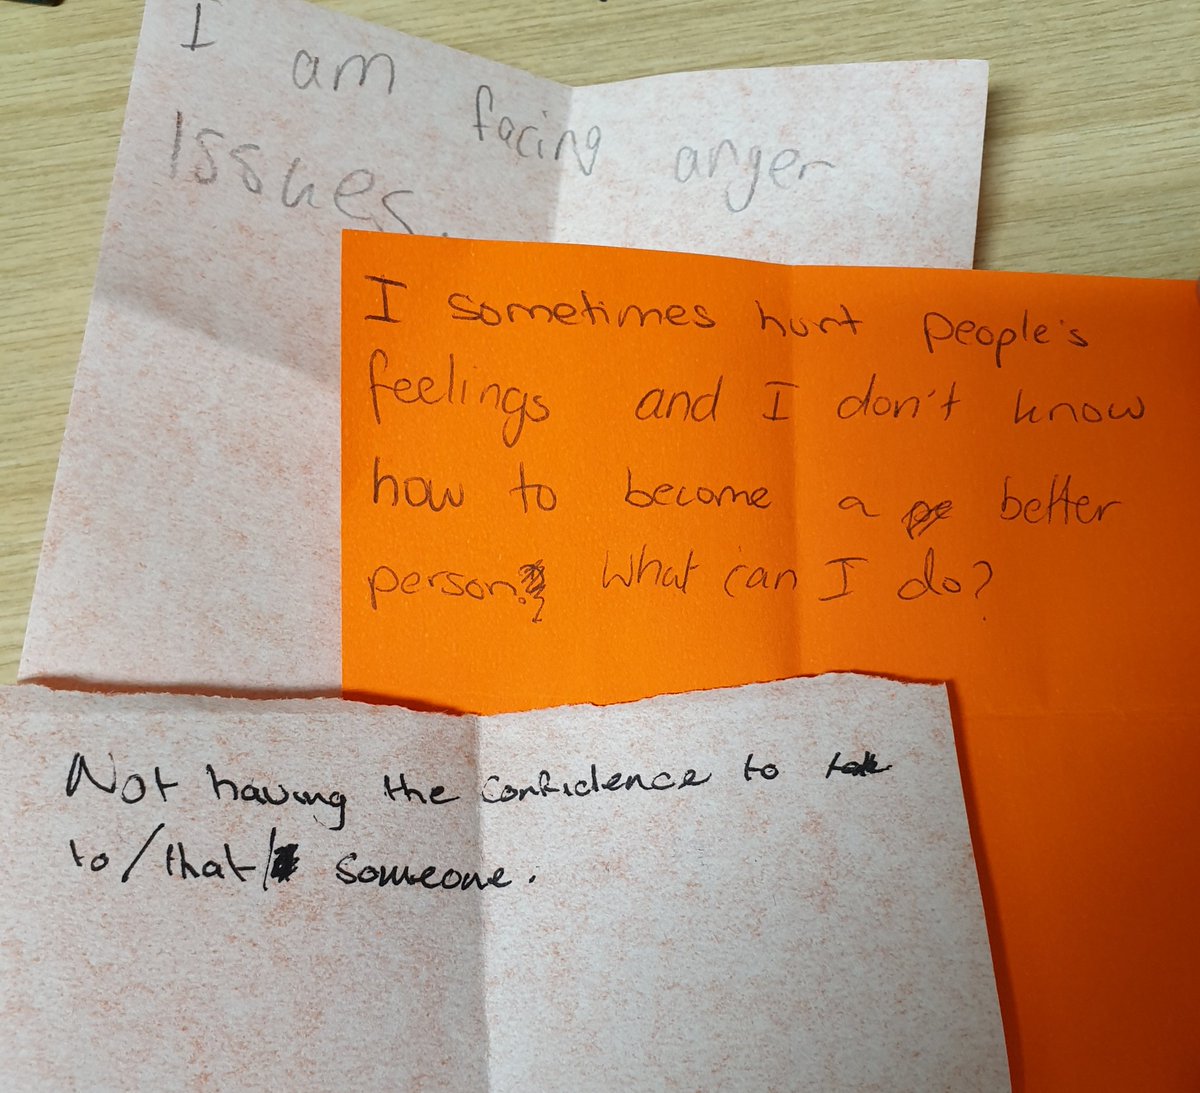 I am facing anger
Issues.
I sometimes hurt people's
feelings and I don't know
how to become a better
person. What can I do?
Not having the confidence to talk
to/that/ someone.